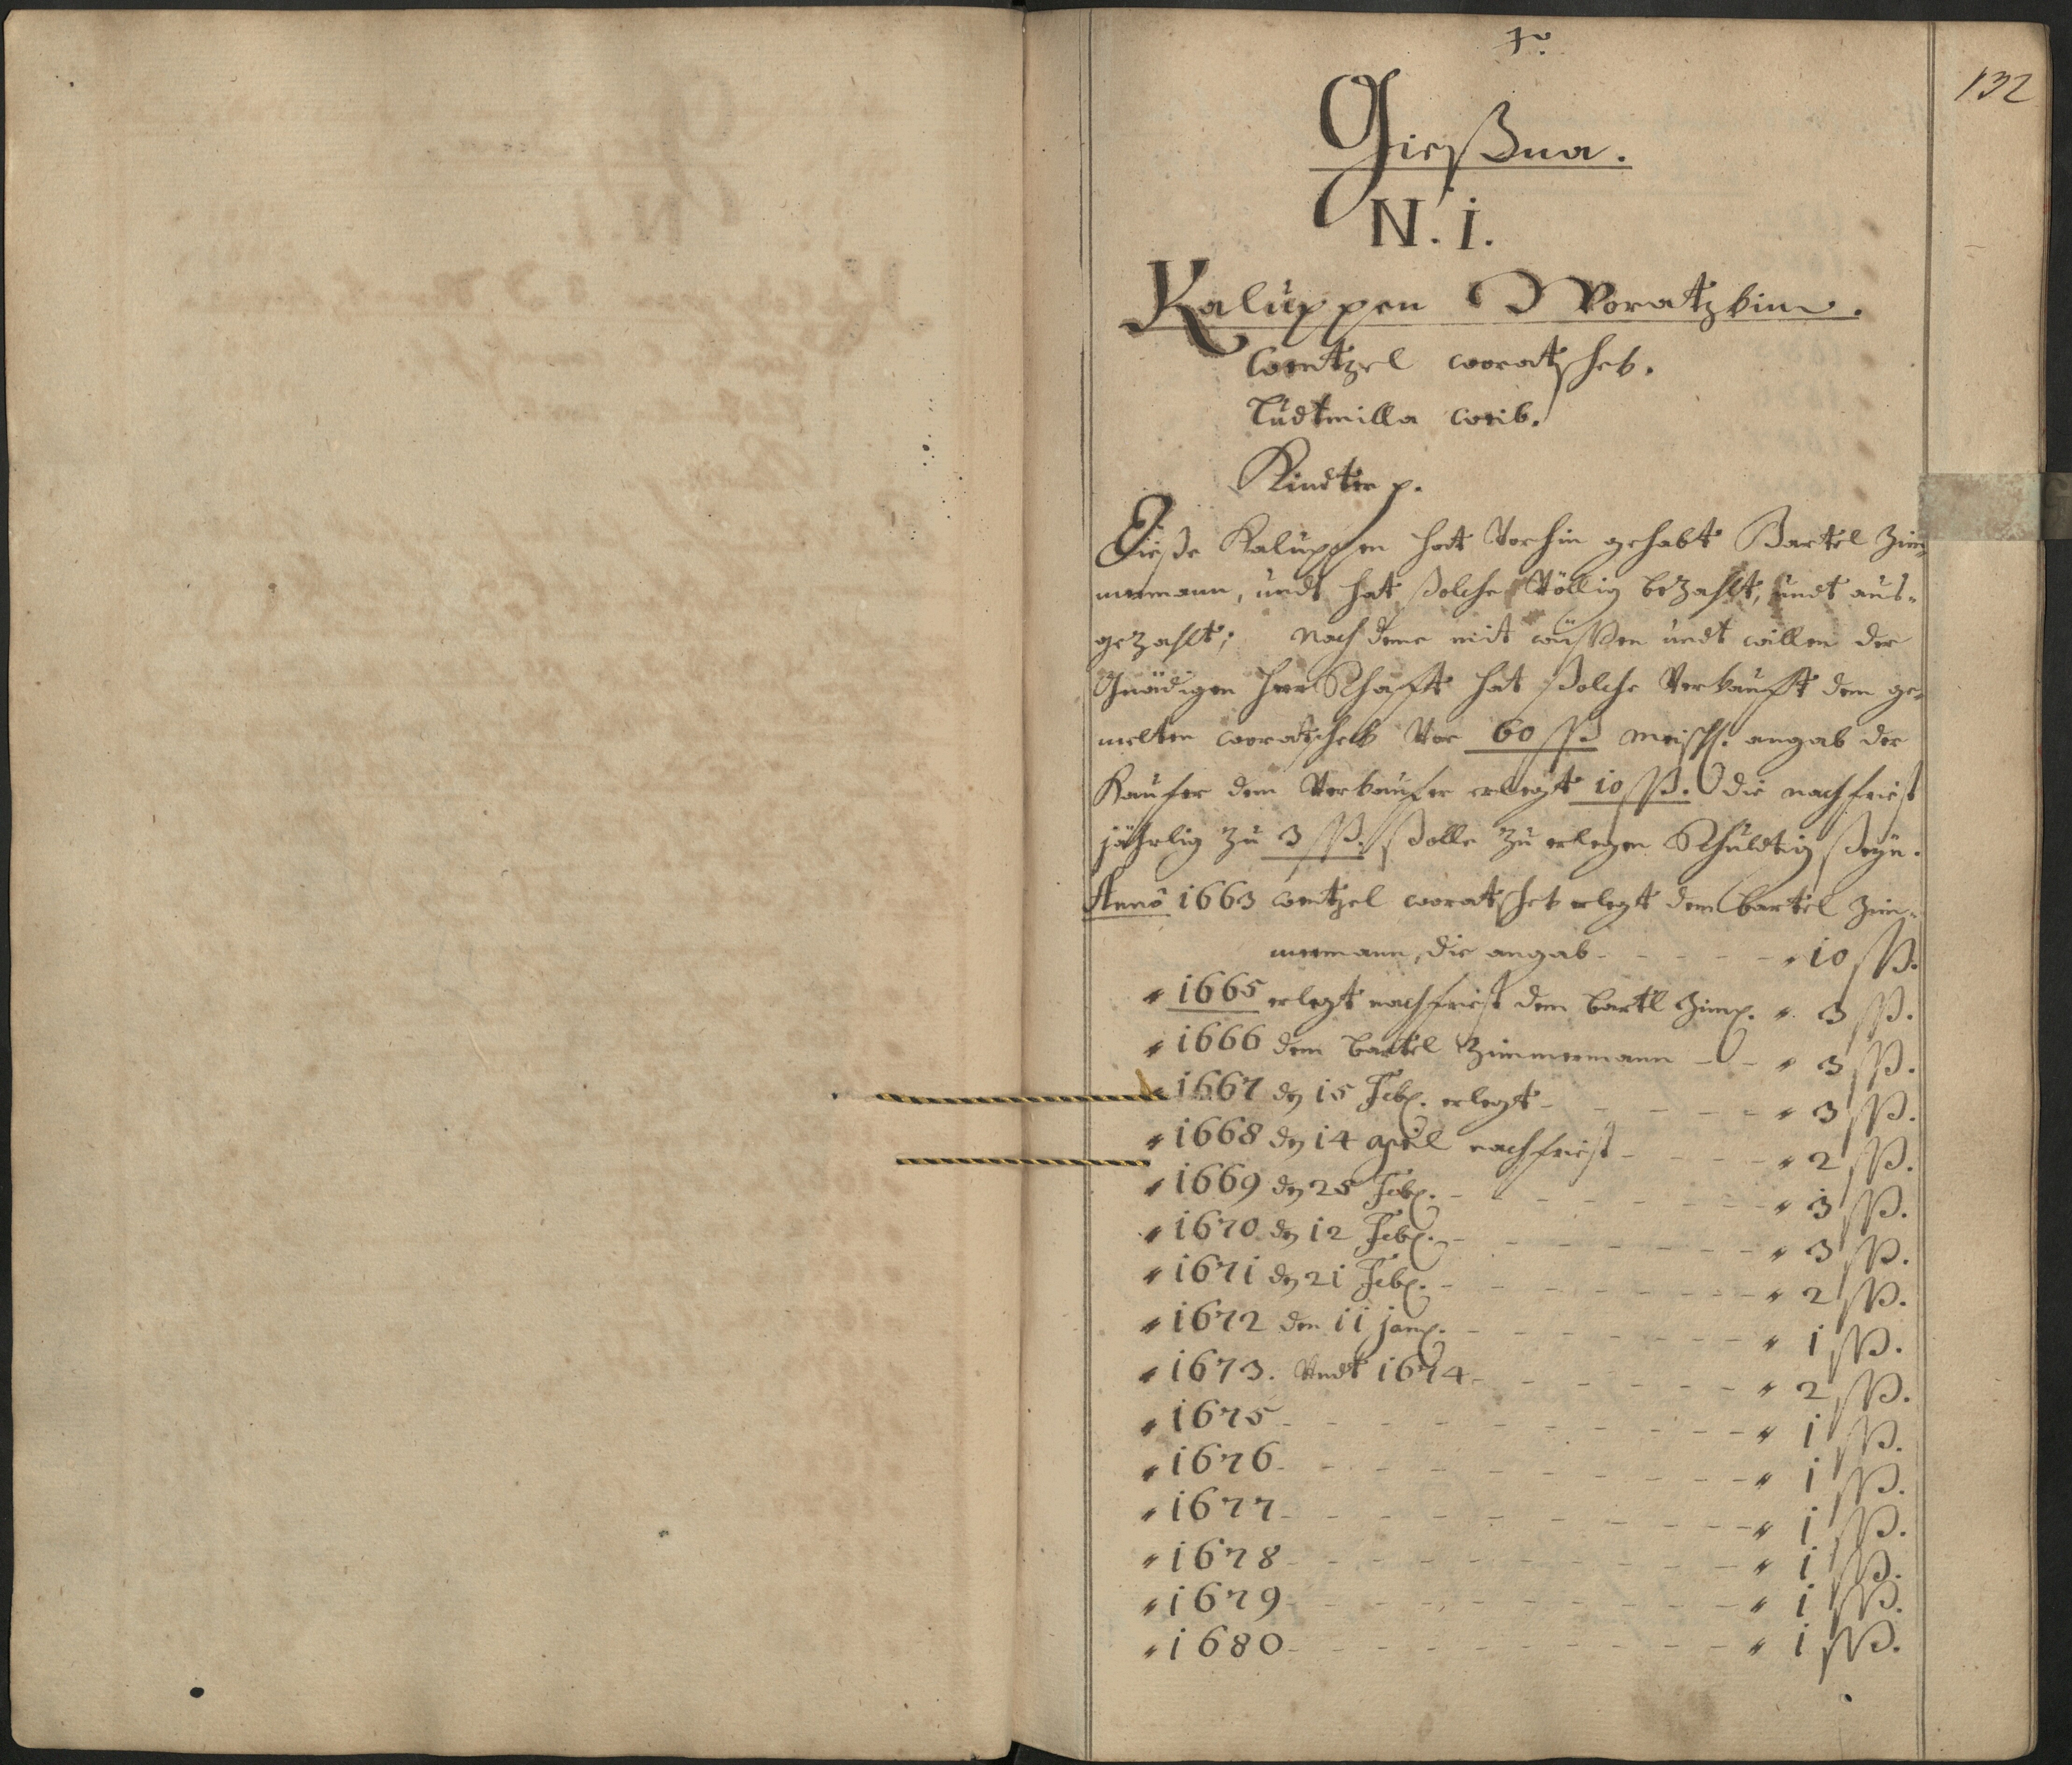 132
Gießna.
N. i.
Kaluppen Woratzkin.
Wentzel Woratschek.
Ludtmilla Weib.
Kindter p.
Dieße Kaluppen hat Vorhin gehabt Bartel Zim-
mermann, undt hat ßolche Völlig bezahlt, undt aus-
gezahlt; Nach deme mit wüßen undt willen der
Gnädigen HerrSchafft hat ßolche Verkaufft dem ge-
melten Woratschek Vor 60 ßß Meisch. angab der
Kaufer dem Verkaufer erlegt 10 ßß. die nachfriest
jährlig zu 3 ßß. ßolle zu erlegen Schuldtig ßeyn.
Anno 1663 Wentzel Woratschek erlegt dem Bartel Zim-
mermann, die angab - - - - " 10 ßß.
" 1665 erlegt nachfriest dem Bartl Zim. " 3 ßß.
" 1666 dem Bartel Zimmermann - - " 3 ßß.
" 1667 den 15 Feb. erlegt - - - - " 3 ßß.
" 1668 den 14 April nachfriest - - - - " 2 ßß.
" 1669 den 25 Feb. - - - - - - " 3 ßß.
" 1670 den 12 Feb. - - - - - - " 3 ßß.
" 1671 den 21 Feb. - - - - - - " 2 ßß.
" 1672 den 11 jan. - - - - - - " 1 ßß.
" 1673. Undt 1674 - - - - - - " 2 ßß.
" 1675 - - - - - - - - " 1 ßß.
" 1676 - - - - - - - - " 1 ßß.
" 1677 - - - - - - - - " 1 ßß.
" 1678 - - - - - - - - " 1 ßß.
" 1679 - - - - - - - - " 1 ßß.
" 1680 - - - - - - - - " 1 ßß.